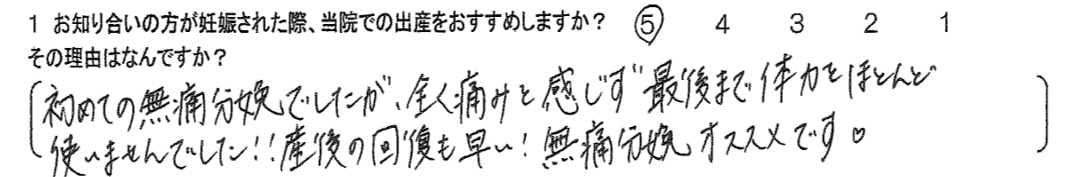 1 お知り合いの方が妊娠された際、当院での出産をおすすめしますか? ⑤ 4 3 2 1
その理由はなんですか?
(初めての無痛分娩でしたが、全く痛みを感じず最後まで体力をほとんど
使いませんでした!!産後の回復も早い!無痛分娩オススメです。)